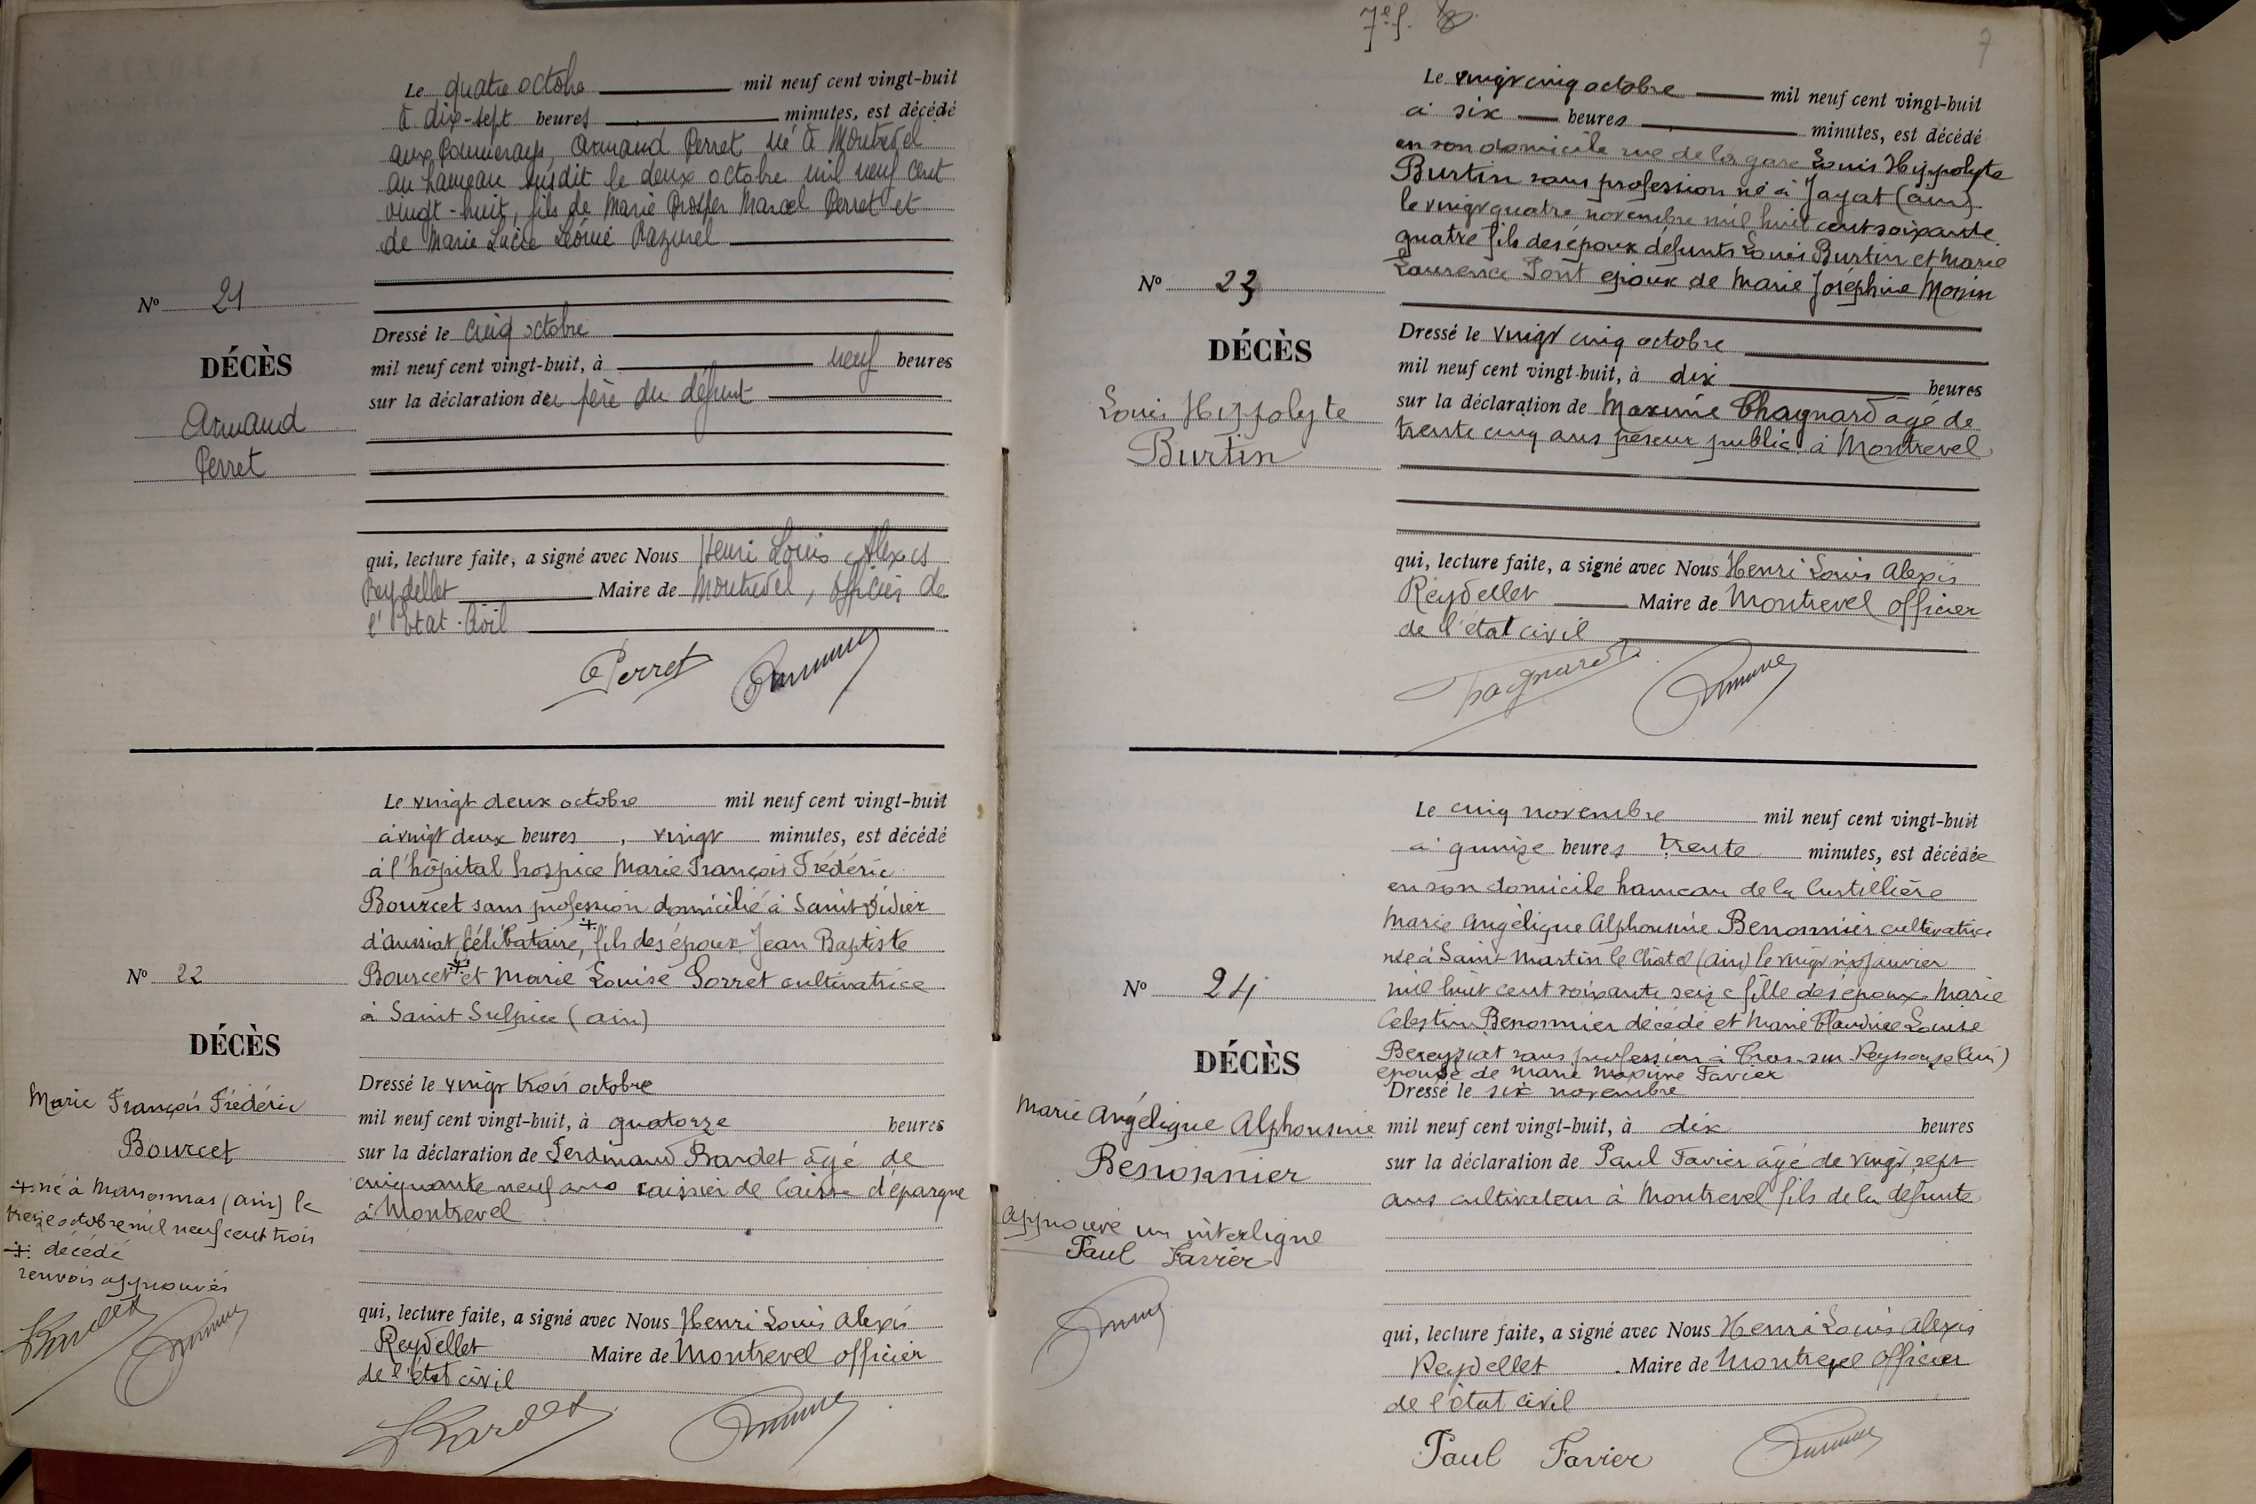 Le quatre octobre mil neuf cent vingt-huit
à dix-sept heures minutes, est décédé
aux Pommerays, Armand Perret né à Montrevel
au hameau susdit le deux octobre mil neuf cent
vingt-huit, fils de Marie Prosper Marcel Perret et
de Marie Lucie Léonie Razurel
N° 21
DÉCÈS
Armand
Perret
Dressé le cinq octobre
mil neuf cent vingt-huit, à neuf heures
sur la déclaration de du père du défunt
qui, lecture faite, a signé avec Nous Henri Louis Alexis
Reydellet Maire de Montrevel, officier de
l'Etat-Civil
Perret
Le vingt deux octobre mil neuf cent vingt-huit
à vingt deux heures, vingt minutes, est décédé
à l'hôpital hospice Marie François Frédéric
Bourcet sans profession domicilié à Saint Didier
d'aussiat célibataire, fils des époux Jean Baptiste
Bourcet et Marie Louise Gorret cultivatrice
à Saint Sulpice (ain)
N° 22
DÉCÈS
Marie François Frédéric
Bourcet
né à Marsonnas (ain) le
treize octobre mil neuf cent trois
décédé
renvois approuvés
Bardet
Dressé le vingt trois octobre
mil neuf cent vingt-huit, à quatorze heures
sur la déclaration de Ferdinand Bardet âgé de
cinquante neuf ans caissier de Caisse d'épargne
à Montrevel
qui, lecture faite, a signé avec Nous Henri Louis Alexis
Reydellet Maire de Montrevel officier
de l'état civil
Bardet
7e f.
7
Le vingt cinq octobre mil neuf cent vingt-huit
à six heures minutes, est décédé
en son domicile rue de la gare Louis Hippolyte
Burtin sans profession né à Jayat (ain)
le vingt quatre novembre mil huit cent soixante
quatre fils des époux défunts Louis Burtin et Marie
Laurence Pont époux de Marie Joséphine Monin
N° 23
DÉCÈS
Louis Hippolyte
Burtin
Dressé le vingt cinq octobre
mil neuf cent vingt-huit, à dix heures
sur la déclaration de Maxime Chagnard âgé de
trente cinq ans peseur public à Montrevel
qui, lecture faite, a signé avec Nous Henri Louis Alexis
Reydellet Maire de Montrevel officier
de l'état civil
Chagnard
Le cinq novembre mil neuf cent vingt-huit
à quinze heures trente minutes, est décédée
en son domicile hameau de la Curtillière
Marie Angélique Alphonsine Benonnier cultivatrice
née à Saint Martin le Châtel (ain) le vingt six janvier
mil huit cent soixante seize fille des époux Marie
Célestin Benonnier décédé et Marie Claudine Louise
Bereyziat sans profession à Cras-sur-Reyssouze (ain)
épouse de Marie Maxime Favier
N° 24
DÉCÈS
Marie Angélique Alphonsine
Benonnier
approuvé un interligne
Paul Favier
Dressé le six novembre
mil neuf cent vingt-huit, à dix heures
sur la déclaration de Paul Favier âgé de vingt sept
ans cultivateur à Montrevel fils de la défunte
qui, lecture faite, a signé avec Nous Henri Louis Alexis
Reydellet Maire de Montrevel officier
de l'état civil
Paul Favier